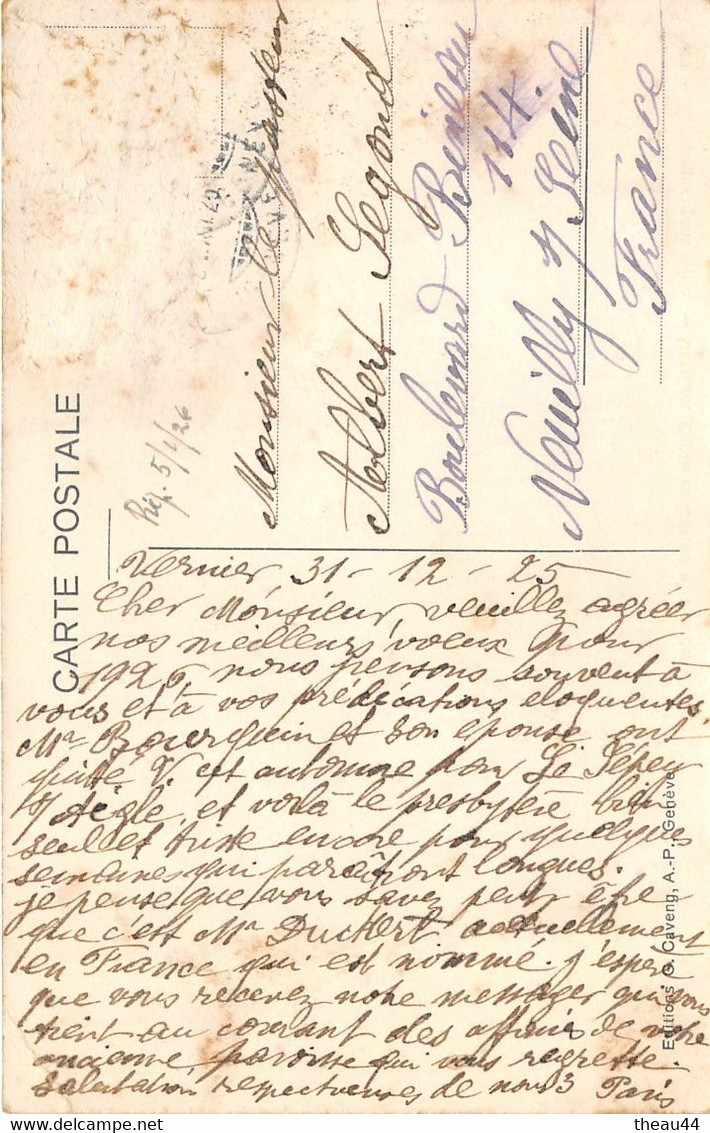 CARTE POSTALE
Monsieur le pasteur
Albert Segond
Boulevard Bineau
114.
Neuilly s/ Seine
France
Rép. 5/1/26
Vernier 31 - 12 - 25
Cher Monsieur, veuillez agréer
nos meilleurs voeux pour
1926, nous pensons souvent à
vous et à vos prédications éloquentes.
Mr Bourquin et son épouse ont
quitté V. cet automne pour Le Sépey
s/ Aigle, et voilà le presbytère bien
seul et triste encore pour quelques
semaines qui paraîtront longues.
je pense que vous savez peut être
que c'est Mr Duckert actuellement
en France qui est nommé. j'espère
que vous recevez notre messager qui vous
tient au courant des affaires de votre
ancienne paroisse qui vous regrette.
Salutation respectueuses de nous 3 Paris
Editions G. Caveng, A.-P., Genève
theau44